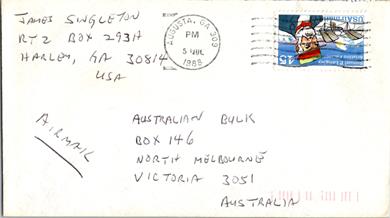 JAMES SINGLETON
RT 2 BOX 293A
HARLEM, GA 30814
USA
AUGUSTA, GA 309
PM
1988
USAirmail
45
AIRMAIL
AUSTRALIAN BULK
BOX 146
NORTH MELBOURNE
VICTORIA 3051
AUSTRALIA